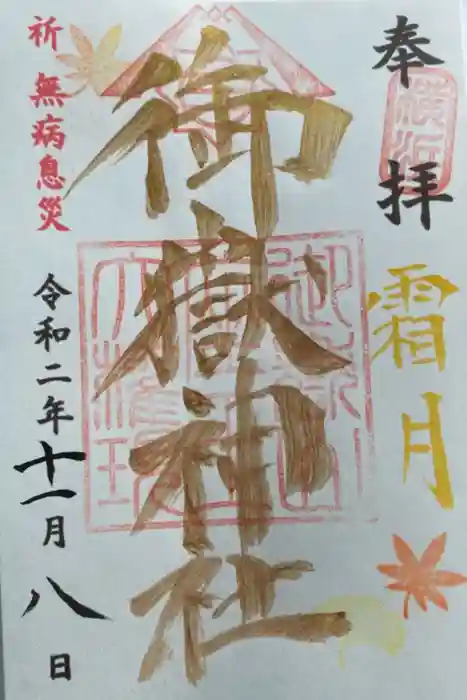 奉拝
霜月
御嶽神社
祈 無病息災
令和二年十一月八日